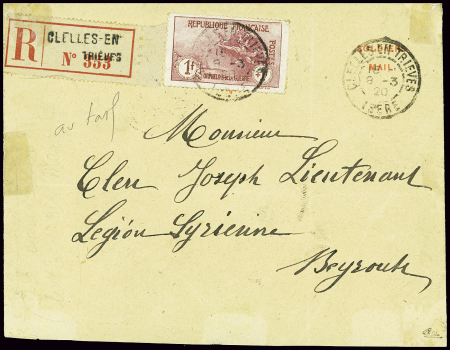 R
CLELLES-EN
TRIÈVES
N° 353
REPUBLIQUE FRANÇAISE
POSTES
1f
ORPHELINS DE LA GUERRE
SOLDIER'S
MAIL.
CLELLES-EN-TRIEVES
8 -3
20
ISERE
au tarif
Monsieur
Clerc Joseph Lieutenant
Légion Syrienne
Beyrouth